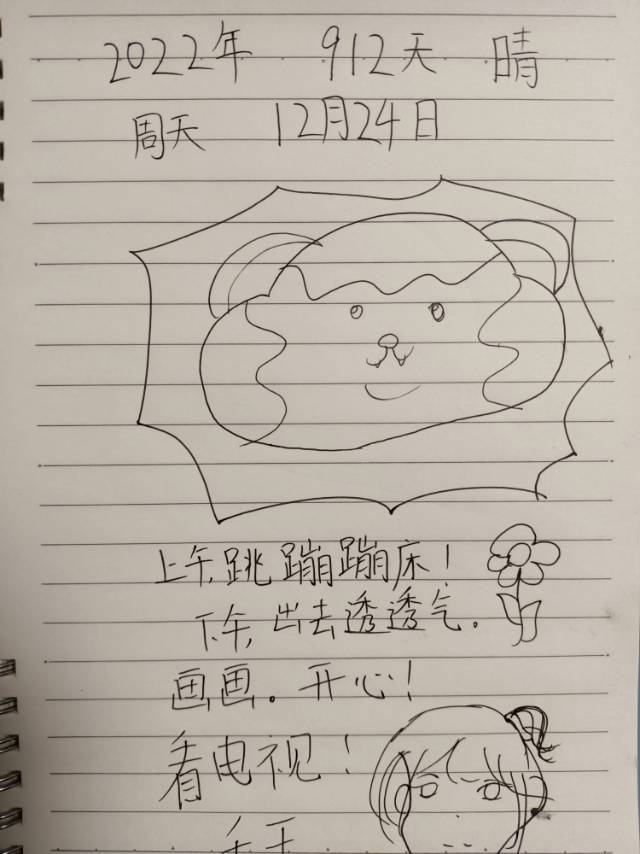 2022年 912天 晴
周天 12月24日
上午,跳蹦蹦床!
下午,出去透透气。
画画。开心!
看电视!